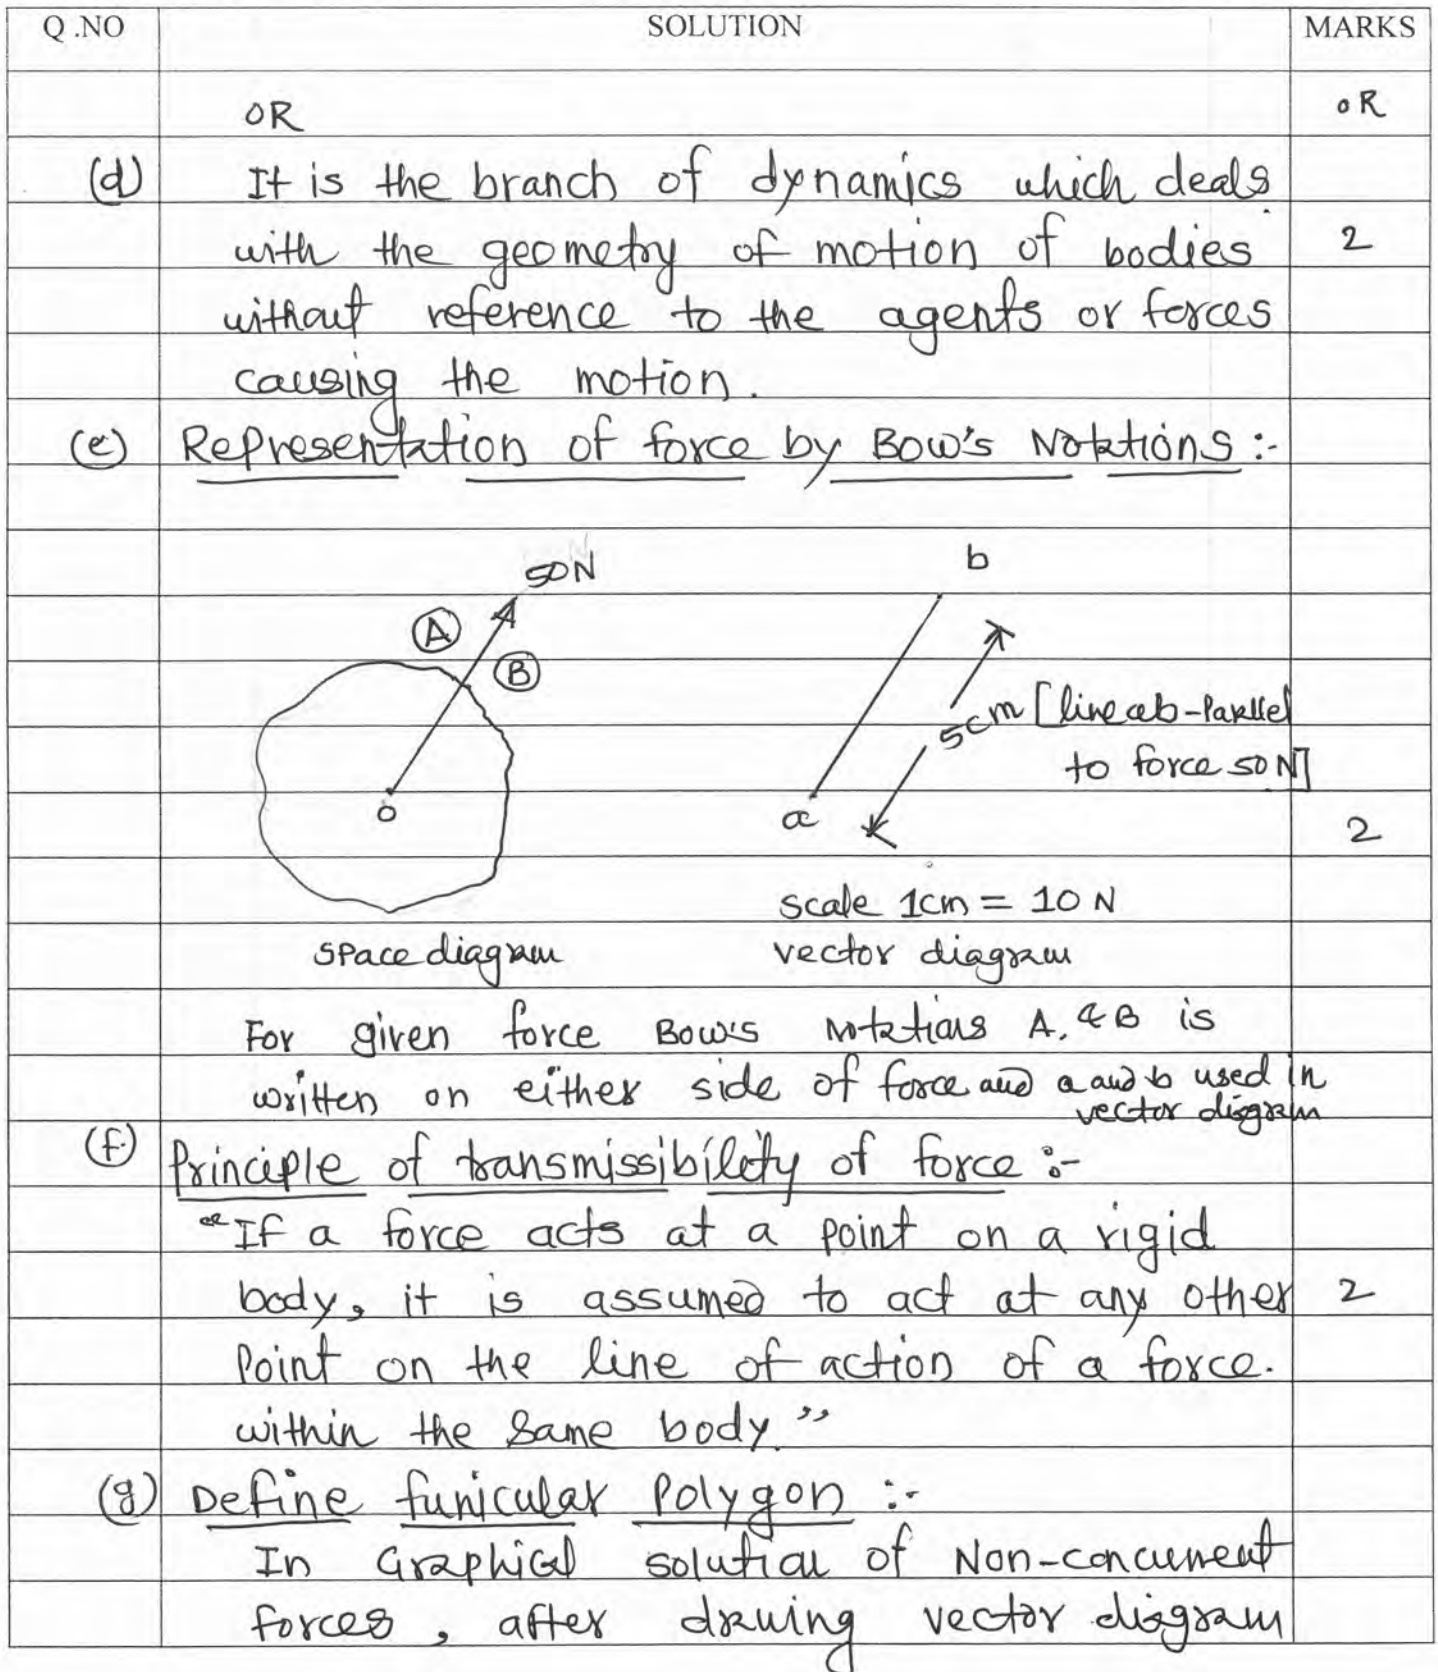 Q.NO SOLUTION MARKS
OR OR
(d) It is the branch of dynamics which deals
with the geometry of motion of bodies 2
without reference to the agents or forces
causing the motion.
(e) Representation of force by Bow's Notations :-
50N b
A
B
5cm [line ab-Parllel
to force 50 N]
o a
2
scale 1cm = 10 N
space diagram vector diagram
For given force Bow's Notations A, & B is
written on either side of force and a and b used in
vector diagram
(f) Principle of transmissibility of force :-
"If a force acts at a point on a rigid
body, it is assumed to act at any other 2
Point on the line of action of a force.
within the same body."
(g) Define funicular Polygon :-
In Graphical solution of Non-concurrent
forces, after drawing vector diagram